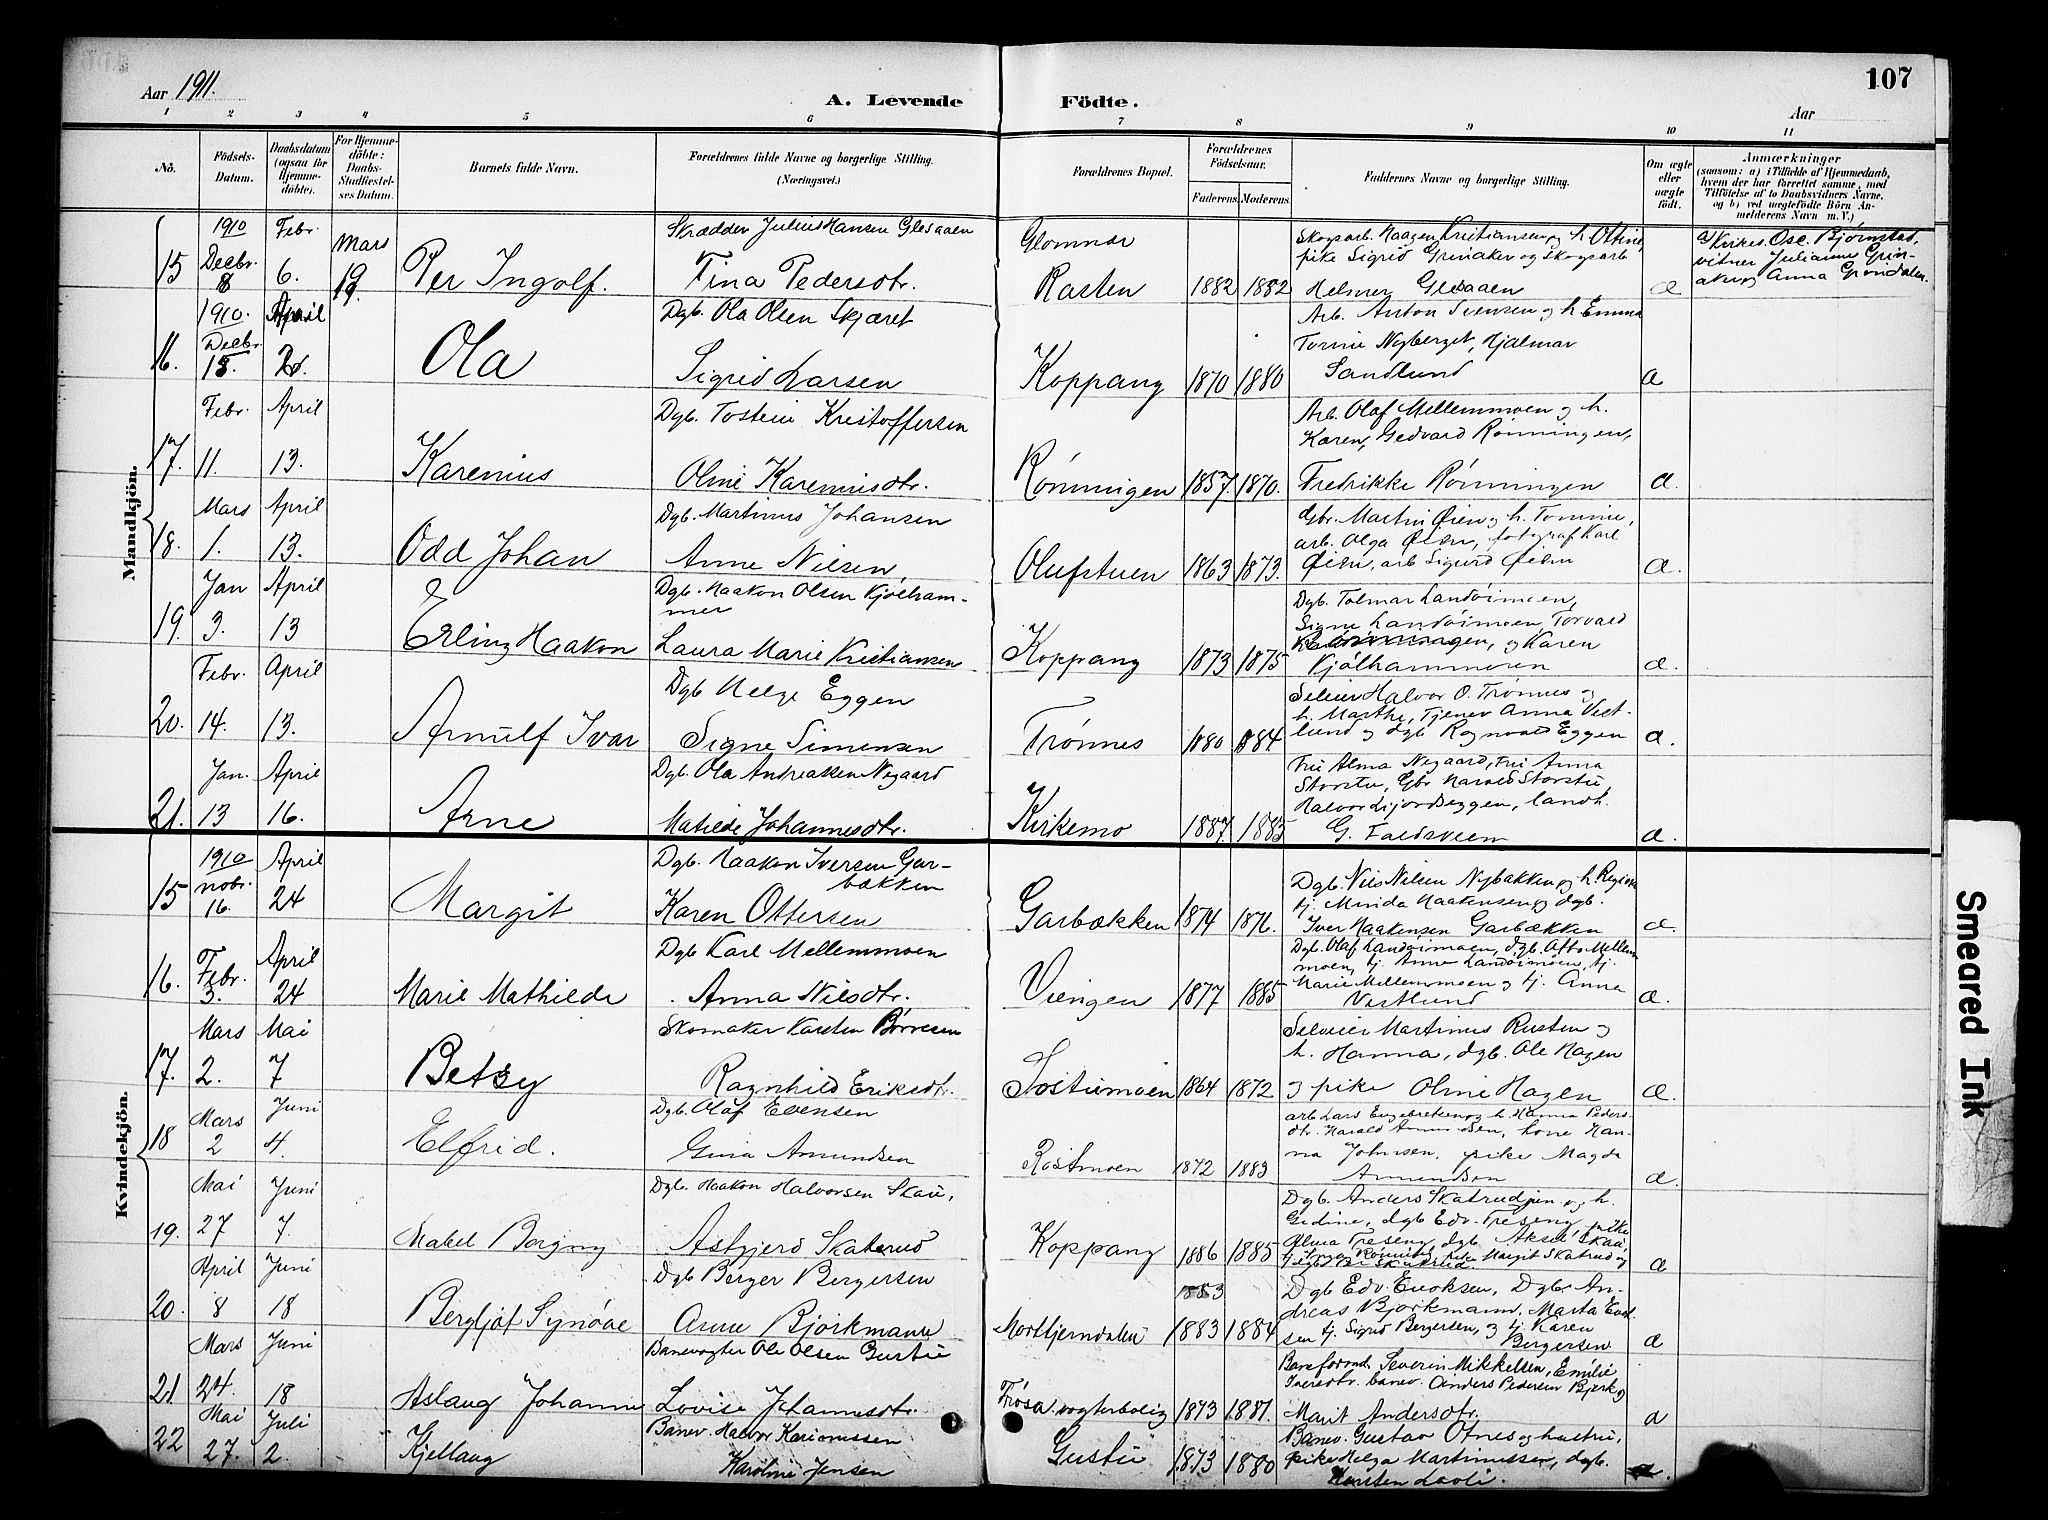 107
Aar 1911.
A. Levende Födte.
Aar
1 2 3 4 5 6 7 8 9 10 11
No.
Födsels-Datum.
Daabsdatum (ogsaa for Hjemme-döbte).
For Hjemme-döbte: Daabs-Stadfæstel-ses Datum.
Barnets fulde Navn.
Forældrenes fulde Navne og borgerlige Stilling. (Næringsvei.)
Forældrenes Bopæl.
Forældrenes Födselsaar.
Faderens. Moderens.
Faddernes Navne og borgerlige Stilling.
Om ægte eller uægte födt.
Anmærkninger
(saasom: a) i Tilfælde af Hjemmedaab, hvem der har forrettet samme, med Tilföielse af to Daabsvidners Navne. og b) ved uægtefödte Börn An-melderens Navn m. V.)
Mandkjön.
15 1910 Decbr. 8 Febr. 6. Mars 19 Per Ingolf. Skrædder Julius Hansen Glesaaen
Tina Pedersdtr. Glommer Rasten 1882 1882 Skogsarb. Haagen Kristiansen og h. Ottine,
pike Sigrid Grinaker og skogsarb
Helmer Glesaaen æ Kirkes. Osc. Bjørnstad,
vitner Julianne Grin-
aker og Anna Grøndalen.
16. 1910. Decbr 15. April 2. Ola Dgb. Ola Olsen Skjæret
Sigrid Larsen Koppang 1870 1880 Arb. Anton Svensen og h Emma
Tomine Nyberget, Hjalmar
Sandlund æ
17. Febr. 11. April 13. Karenius Dgb. Tostein Kristoffersen
Oline Kareniusdtr. Rønningen 1857 1870. Arb. Olaf Mellemmoen og h.
Karen, Gedvard Rønningen,
Fredrikke Rønningen æ.
18. Mars 1. April 13. Odd Johan Dgb. Martinus Johansen
Anne Nilsen, Olufstuen 1863 1873. Gbr. Martin Øien og h. Tomine,
arb. Olga Øien, fotograf Karl
Øien, arb Sigurd Øien æ.
19. Jan 3. April 13 Erling Haakon Dgb. Haakon Olsen Kjølham-
mer
Laura Marie Kristiansen Koppang 1873 1875 Dgb. Tolmar Landóimoen,
Signe Landóimoen, Torvald
og Karen
Kjølhammoren æ.
20. Febr. 14. April 13. Arnulf Ivar Dgb Helge Eggen
Signe Simensen Trønnes 1880 1884 Seleier Halvor O. Trønnes og
h. Marthe, Tjener Anna Vest-
lund og dgb Ragnvald Eggen æ.
21. Jan. 13 April 16. Arne Dgb. Ola Andreassen Negaard
Matilde Johannesdtr. Kirkemo 1887 1885 Fru Alma Negaard, Fru Anna
Storstu, Gbr Harald Storstu,
Halvor Lijordseggen, landh.
G. Faldsveen æ.
Kvindekjön.
15 1910 Nobr. 16. April 24 Margit Dgb. Haakon Iversen Gar-
bækken
Karen Ottersen Garbækken 1874 1876. Dgb. Nils Nilsen Nybakken og h Regine
tj. Minda Haakensen og dgb.
Iver Haakensen Garbækken æ.
16. Febr 3. April 24 Marie Mathilde Dgb Karl Mellemmoen
Anna Nilsdtr. Viengen 1877 1885 Dgb. Olaf Landóimoen, dgb. Mellem
moen, tj. Anne Landóimoen, tj.
Marie Mellemmoen og tj. Anna
Vestlund æ.
17. Mars 2. Mai 7 Betsy Skomaker Karsten Børresen
Ragnhild Eriksdtr. Tostumoen 1864 1872 Selveier Martinus Rusten og
h. Hanna, dgb. Ole Hagen
og pike Oline Hagen æ.
18 Mars 2 Juni 4. Elfrid. Dgb. Olaf Evensen
Gina Amundsen Rostmoen 1872 1883 arb Lars Engebretsen og h. Hanna Peders-
dtr. Harald Amundsen, kone Han-
na Johnsen. pike Magda
Amundsen æ.
19. Mai 27 Juni 7. Mabel Borgny Dgb. Haakon Halvorsen Skau,
Asbjerd Skaterud Koppang 1886 1885 Dgb. Anders Skatrudjen og h.
Gedine, dgb Edv. Treseng, pike
Olma Treseng, dgb Aksel Skaa
pike Margit Skatrud og æ
20. April 8 Juni 18 Bergljot Synöve Dgb Berger Bergersen
Anne Bjørkmann Mortbjerndalen 1883 1884 Dgb Edv. Eriksen, Dgb. An-
dreas Bjorkmann. Marta Evd
sen tj. Sigrid Bergersen, og tj. Karen
Bergersen æ
21. Mars 24. Juni 18 Aslaug Johanne Banevogter Ole Olsen Gustu
Lovise Johannesdtr. Trøsa vogterbolig 1873 1881. Baneformd. Severin Mikkelsen, Emilie
Iversdtr. banev. Anders Pedersen Bjerk og
Marit Andersdtr. æ
22 Mai 27. Juli 2. Kjellaug Banev. Halvor Kariniussen
Karoline Jensen Gustu 1873 1880 Banev. Gustav Otnes og hustru,
pike Helga Martinussen, dgb.
Karsten Løvli. æ.
Smeared Ink